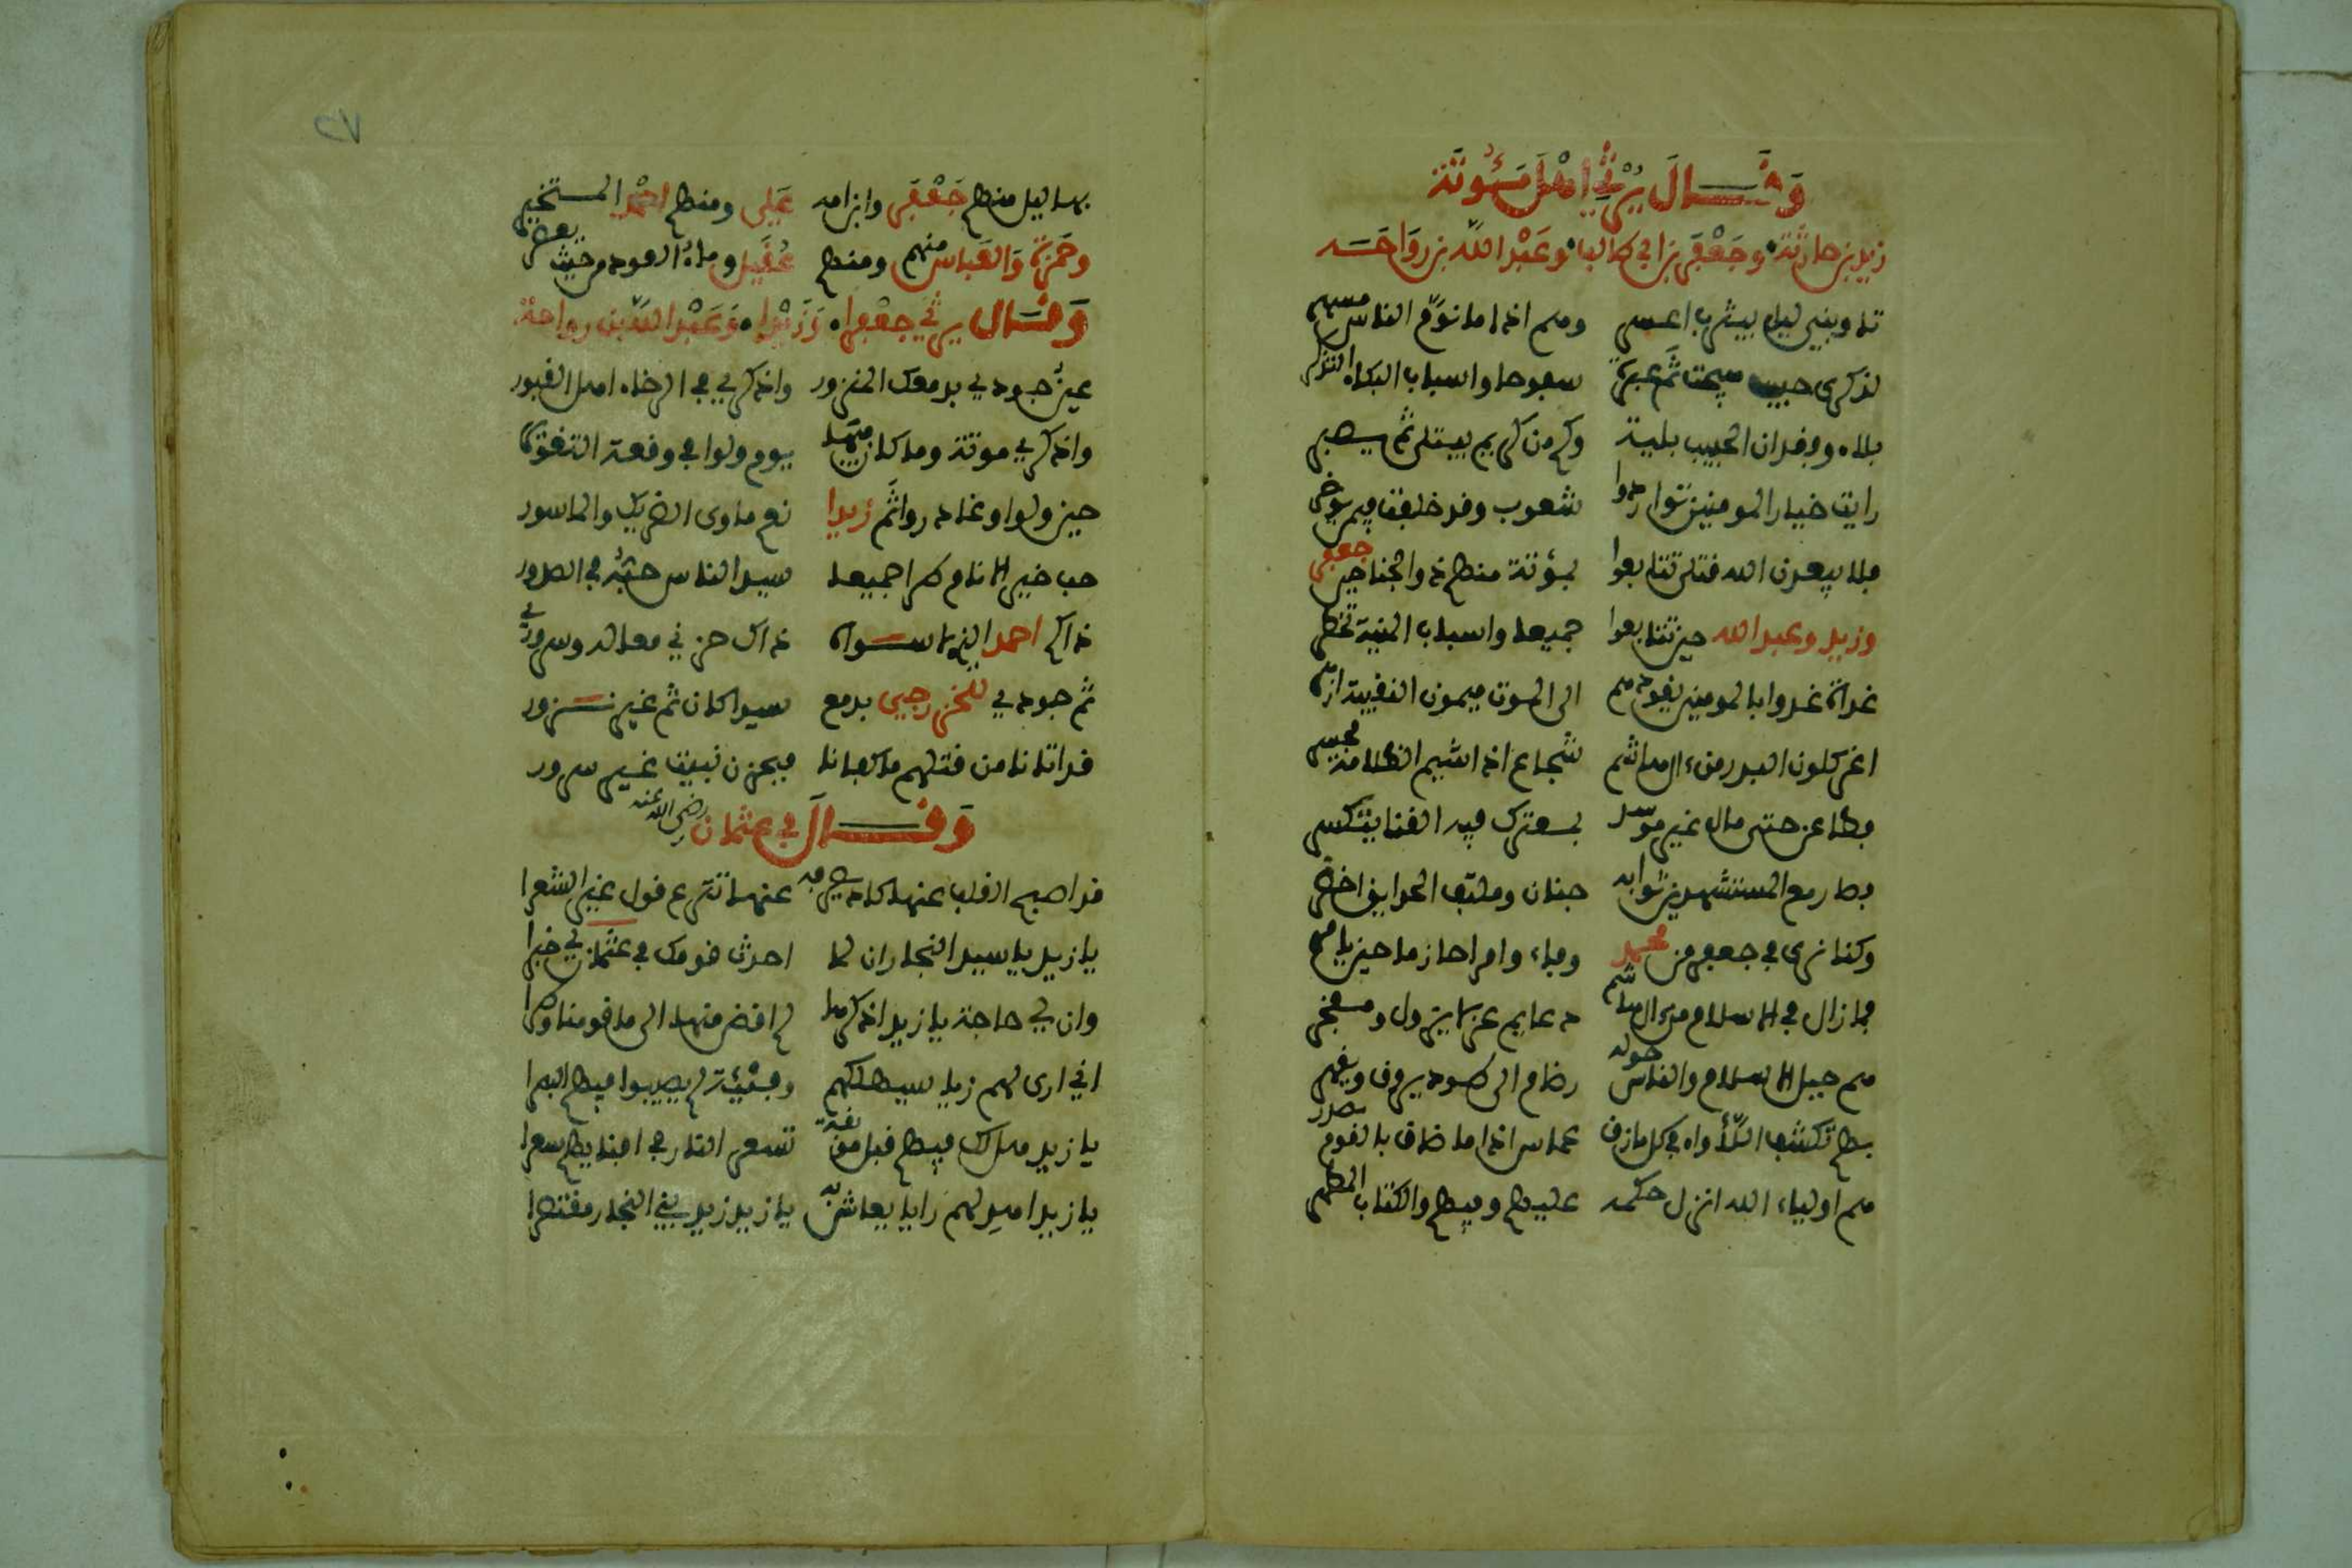 وقال يرثي اهل مؤتة
زيد بن حارثة وجعفر بن ابي طالب وعبد الله بن رواحة
تاوبني ليل بيثرب اعسر وهم اذا ما نوم الناس مسهر
لذكرى حبيب هيجت ثم عبرة سفوحا واسباب البكاء التذكر
بلاء وفقدان الحبيب بلية وكم من كريم يبتلى ثم يصبر
رايت خيار المومنين تواردوا شعوب وقد خلفت فيمن يوخر
فلا يبعدن الله قتلى تتابعوا بمؤتة منهم ذو الجناحين جعفر
وزيد وعبد الله حين تتابعوا جميعا واسباب المنية تخطر
غداة غدوا بالمومنين يقودهم الى الموت ميمون النقيبة ازهر
اغر كلون البدر من ءال هاشم شجاع اذا سيم الظلامة مجسر
فطاعن حتى مال غير موسد بمعترك فيه القنا يتكسر
فصار مع المستشهدين ثوابه جنان وملتف الحدايق اخضر
وكنا نرى في جعفر من محمد وفاء وامرا حازما حين يامر
فما زال في الاسلام من ءال هاشم دعايم عز لا يزول ومفخر
هم جبل الاسلام والناس حوله رضام الى طود يروق ويقهر
بهم تكشف اللأواء في كل مازق عماس اذا ما ضاق بالقوم مصدر
هم اولياء الله انزل حكمه عليهم وفيهم والكتاب المطهر
٢٧
بهاليل منهم جعفر وابن امه علي ومنهم احمد المتخير
وحمزة والعباس منهم ومنهم عقيل وماء العود من حيث يعصر
وقال يرثي جعفرا وزيدا وعبد الله بن رواحة
عين جودي بدمعك المنزور واذكري في الرخاء اهل القبور
واذكري موتة وما كان فيها يوم ولوا في وقعة التغوير
حين ولوا وغادروا ثم زيدا نعم ماوى الضريك والماسور
حب خير الانام طرا جميعا سيد الناس حبه في الصدور
ذاكم احمد الذي لا سواه ذاك حزني معا له وسروري
ثم جودي للخزرجي بدمع سيدا كان ثم غير نزور
قد اتانا من قتلهم ما كفانا فبحزن نبيت غير سرور
وقال في عثمان رضي الله عنه
قد اصبح القلب عنها كاد يصرفه عنها تترع قول غير الشعرا
يا زيد يا سيد النجار ان لما احدث قومك في عثمان لي خبرا
وان لي حاجة يا زيد اذكرها لم اقض منها الى ما قومنا وطرا
اني ارى لهم زيا سيهلكهم ومشية لم يصيبوا فيهم البصرا
يا زيد هل لك فيهم قبل موبقة تسعر النار في افنايهم سعرا
يا زيد اهد لهم رايا يعاش به يا زيد زيد بني النجار مقتصرا